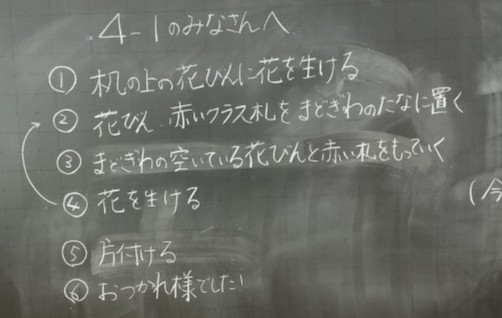 4-1のみなさんへ
① 机の上の花びんに花を生ける
② 花びん、赤いクラス札をまどぎわのたなに置く
③ まどぎわの空いている花びんと赤い札をもっていく
④ 花を生ける
(今
⑤ 片付ける
⑥ おつかれ様でした!